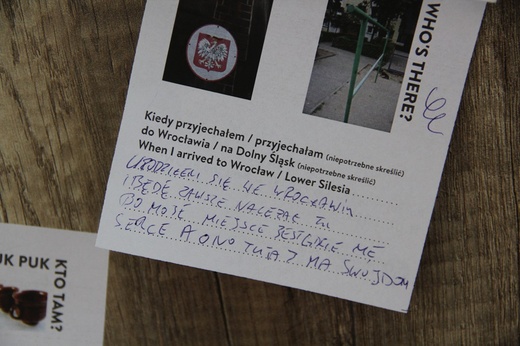 WHO'S THERE?
Kiedy przyjechałem / przyjechałam (niepotrzebne skreślić)
do Wrocławia / na Dolny Śląsk (niepotrzebne skreślić)
When I arrived to Wrocław / Lower Silesia
URODZIŁEM SIĘ WE WROCŁAWIU
I BĘDĘ ZAWSZE NALEŻAŁ TU
BO MOŚĆ MIEJSCE JEST GDZIE ME
SERCE A ONO TUTAJ MA SWÓJ DOM
UK PUK
KTO TAM?